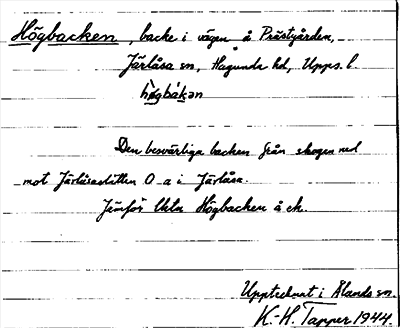 Högbacken, backe i vägen å Prästgården,
Järlåsa sn, Hagunda hd, Upps. l
hö̀gbákan
Den besvärliga backen från skogen ned
mot Järlåsaslätten O a i Järlåsa.
Jämför Högbacken å ek.
Upptecknat i Ålands sn.
K.-H. Tapper 1944.